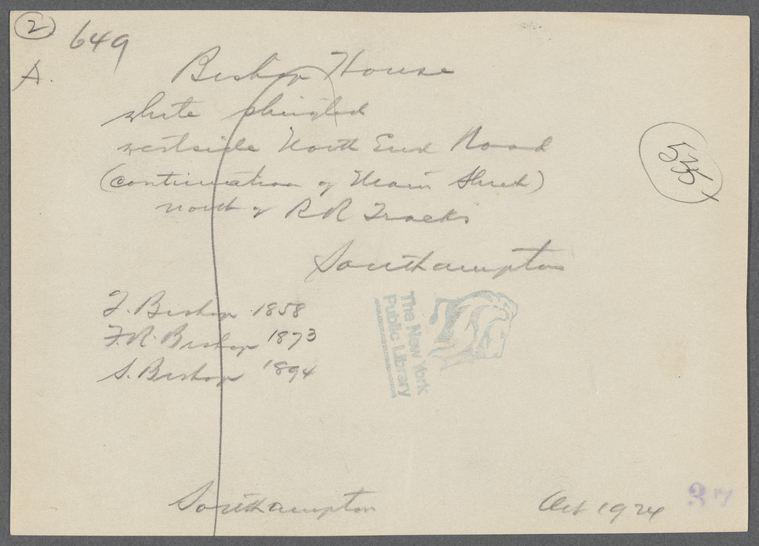 2
649
A.
Bishop House
white shingled
westside North End Road
(continuation of Main Street)
north of RR Tracks
Southampton
J. Bishop 1858
F.R. Bishop 1873
S. Bishop 1894
The New York
Public Library
Southampton
Oct 1924